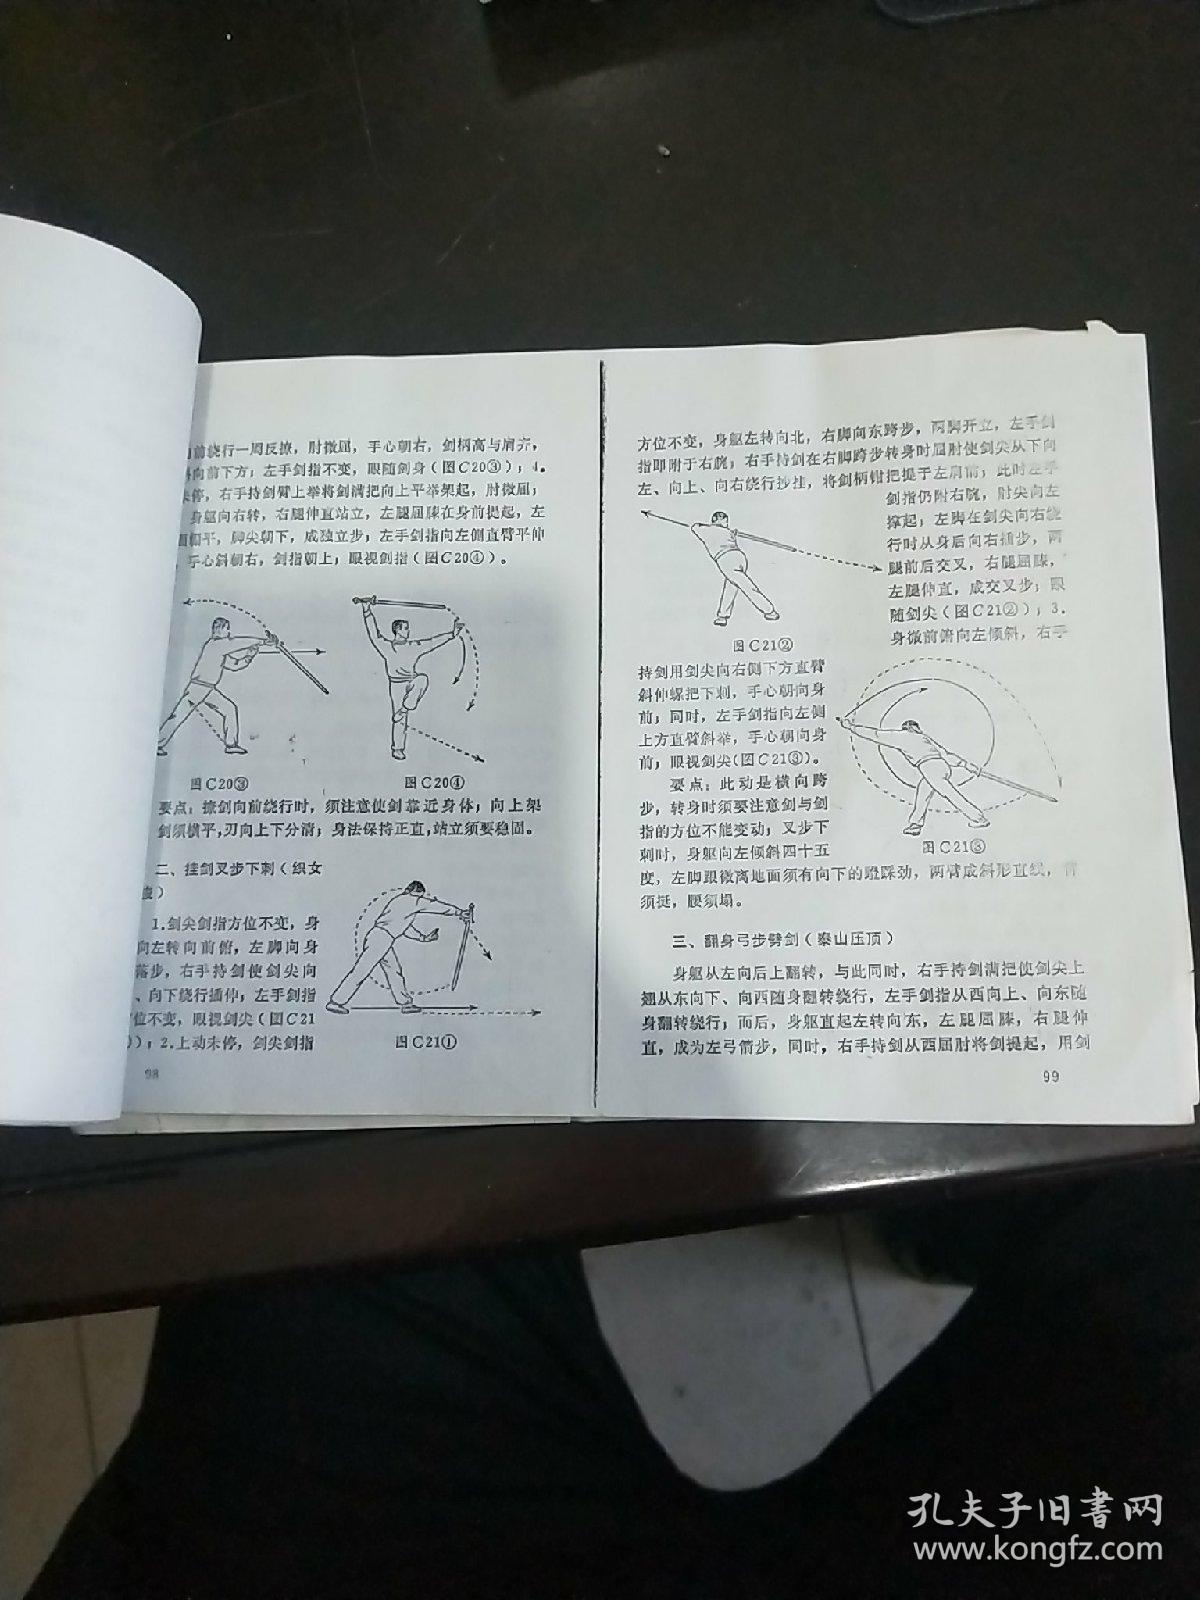 前绕行一周反撩，肘微屈，手心朝右，剑柄高与肩齐，
向前下方；左手剑指不变，眼随剑身（图C20③）；4.
停，右手持剑臂上举将剑满把向上平举架起，肘微屈；
身躯向右转，右腿伸直站立，左腿屈膝在身前提起，左
平，脚尖朝下，成独立步；左手剑指向左侧直臂平伸
手心斜朝右，剑指朝上；眼视剑指（图C20④）。
图C20③
图C20④
要点：撩剑向前绕行时，须注意使剑靠近身体；向上架
剑须横平，刃向上下分清；身法保持正直，站立须要稳固。
二、挂剑叉步下刺（织女
）
1.剑尖剑指方位不变，身
向左转向前俯，左脚向身
落步，右手持剑使剑尖向
、向下绕行插伸；左手剑指
位不变，眼视剑尖（图C21
）；2.上动未停，剑尖剑指
图C21①
98
方位不变，身躯左转向北，右脚向东跨步，两脚开立，左手剑
指即附于右腕；右手持剑在右脚跨步转身时屈肘使剑尖从下向
左、向上、向右绕行抄挂，将剑柄钳把提于左肩前；此时左手
剑指仍附右腕，肘尖向左
撑起；左脚在剑尖向右绕
行时从身后向右插步，两
腿前后交叉，右腿屈膝，
左腿伸直，成交叉步；眼
随剑尖（图C21②）；3.
身微前俯向左倾斜，右手
图C21②
持剑用剑尖向右侧下方直臂
斜伸螺把下刺，手心朝向身
前；同时，左手剑指向左侧
上方直臂斜举，手心朝向身
前；眼视剑尖（图C21③）。
要点：此动是横向跨
步，转身时须要注意剑与剑
指的方位不能变动；叉步下
刺时，身躯向左倾斜四十五
图C21③
度，左脚跟微离地面须有向下的蹬踩劲，两臂成斜形直线，背
须挺，腰须塌。
三、翻身弓步劈剑（泰山压顶）
身躯从左向后上翻转，与此同时，右手持剑满把使剑尖上
翘从东向下、向西随身翻转绕行，左手剑指从西向上、向东随
身翻转绕行；而后，身躯直起左转向东，左腿屈膝，右腿伸
直，成为左弓箭步，同时，右手持剑从西屈肘将剑提起，用剑
99
孔夫子旧书网
www.kongfz.com